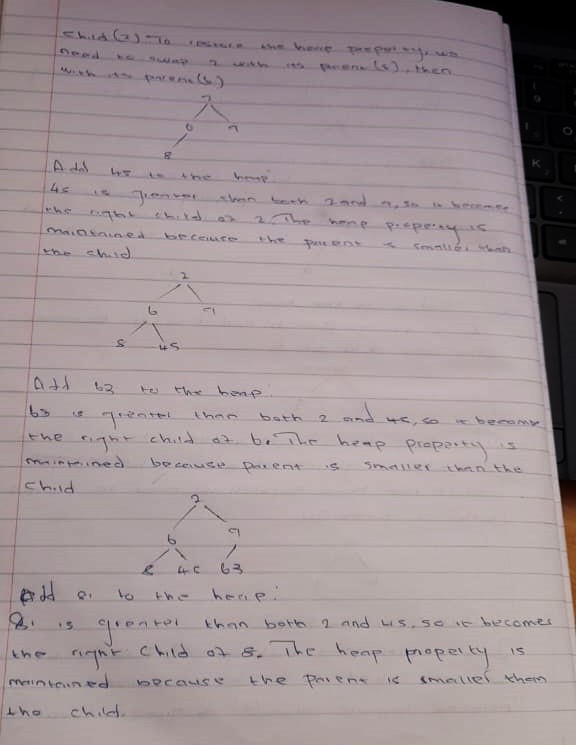 child (2) - To restore the heap property, we
need to swap 2 with its parent (6), then
with its parent (6)
2
6 9
8
Add 45 to the heap:
45 is greater than both 2 and 9, so it becomes
the right child of 2. The heap property is
maintained because the parent is smaller than
the child
2
6 9
8 45
Add 63 to the heap:
63 is greater than both 2 and 45, so it becomes
the right child of 6. The heap property is
maintained because parent is smaller than the
child
2
6 9
8 45 63
Add 81 to the heap:
81 is greater than both 2 and 45, so it becomes
the right child of 8. The heap property is
maintained because the parent is smaller than
the child.